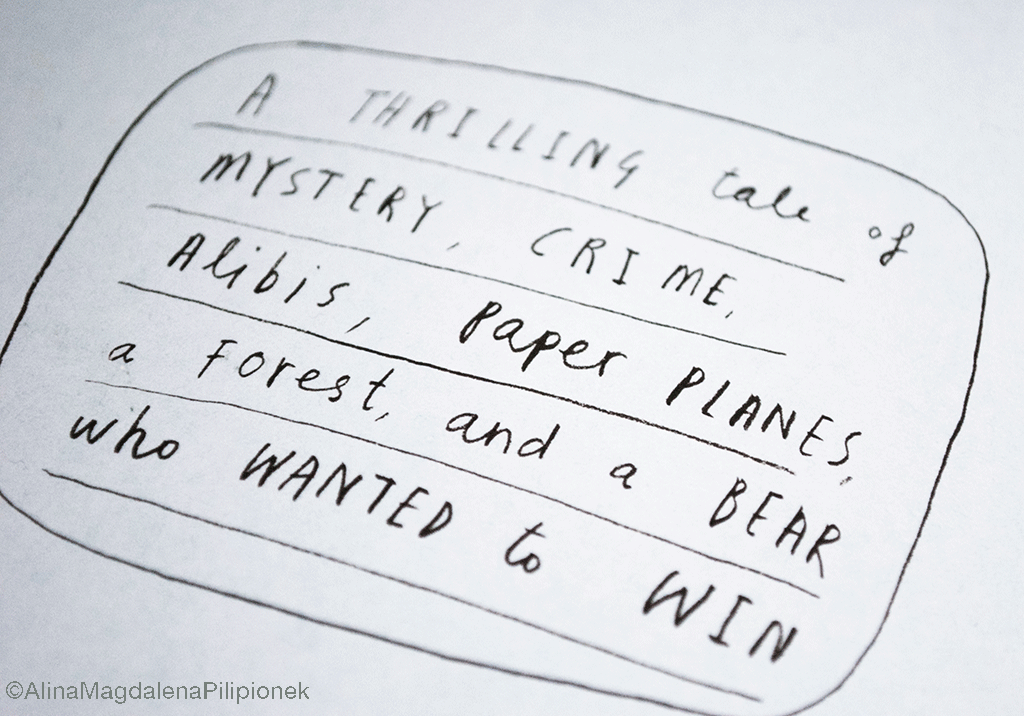 A THRILLING tale of
MYSTERY, CRIME,
Alibis, Paper PLANES,
a Forest, and a BEAR
who WANTED to WIN
©AlinaMagdalenaPilipionek